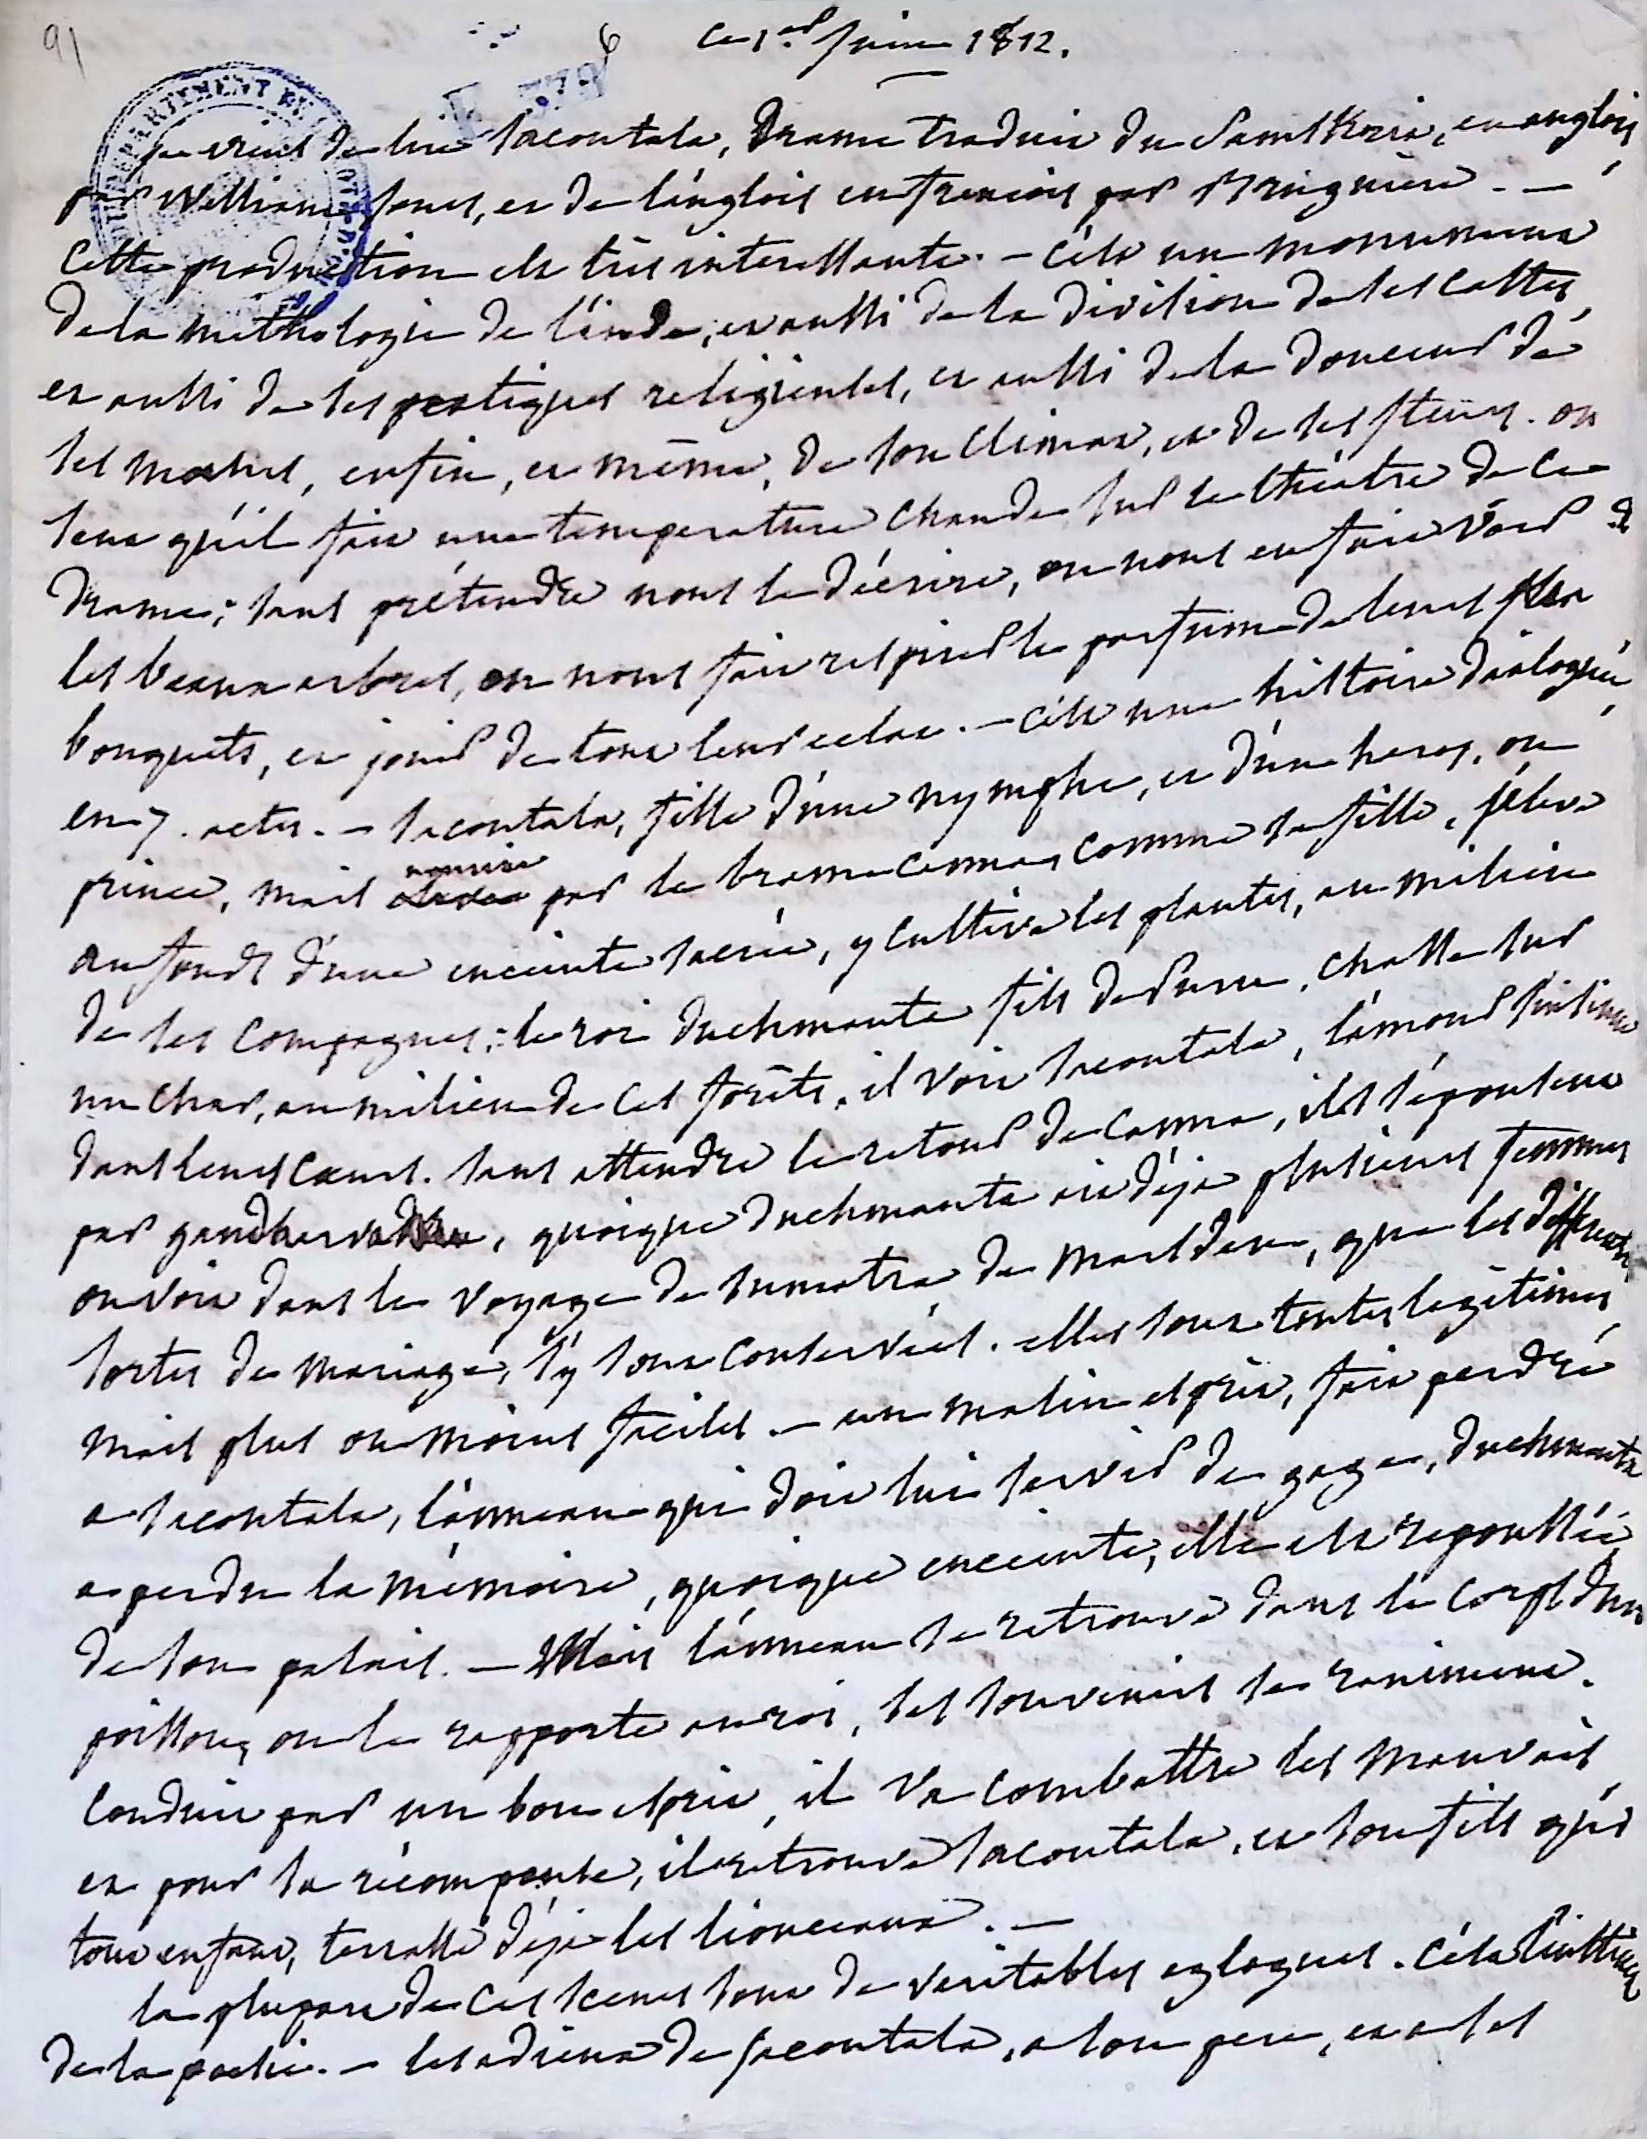 91
6
ce 1.er juin 1812.
je viens de lire Sacontala, drame traduit du Samskrit, en anglois
par William Jones, et de l'anglois en francois par Bruguiere. —
Cette production est très interessante. — C'est un monument
de la mithologie de l'inde, et aussi de la division de ses castes,
et aussi de ses pratiques religieuses, et aussi de la douceur de
ses mœurs, enfin, et même, de son climat, et de ses fleurs. on
sent qu'il fait une temperature chaude sur le théatre de ce
drame; sans prétendre nous le décrire, on nous en fait voir
les beaux arbres, on nous fait respirer le parfum de leurs
bouquets, et jouir de tout leur eclat. — C'est une histoire dialoguée,
en 7. actes. — Sacontala, fille d'une nymphe, et d'un heros, ou
prince, mais nourrie par le brame Canna, comme sa fille, s'éleve
au fonds d'une enceinte sacrée, y cultive les plantes, au milieu
de ses compagnes; le roi duchmanta fils de Purou, chasse sur
un char, au milieu de ces forêts, il voit Sacontala, l'amour s'insinue
dans leurs cœurs. Sans attendre le retour de Canna, ils s'épousent
par gandharva, quoique duchmanta ait déja plusieurs femmes
on voit dans le voyage de Sumatra de Marsden, que les différentes
sortes de mariage, s'y sont conservées. elles sont toutes legitimes,
mais plus ou moins faciles. — un malin esprit, fait perdre
a Sacontala, l'anneau qui doit lui servir de gage, duchmanta
a perdu la mémoire, quoique enceinte, elle est repoussée
de son palais. — Mais l'anneau se retrouve dans le corps d'un
poisson, on le rapporte au roi, ses souvenirs se raniment.
Conduit par un bon esprit, il va combattre les mauvais,
et pour sa récompense, il retrouve Sacontala, et son fils qui
tout enfant, terrasse déja les lionceaux. —
la plupart de ces scenes sont de veritables eglogues. C'est l'instinct
de la poesie. — les adieux de Sacontala, a son pere, et a ses